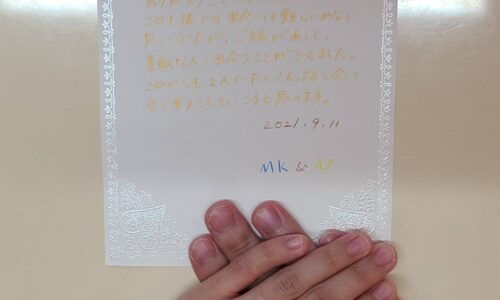 ありがとうございました。
コロナ禍での出会いは難しいかなと
思っていましたが、ご縁があって、
素敵な人と出会うことができました。
これからも2人でたくさん話し合って
思います。
2021.9.11
MK & AS